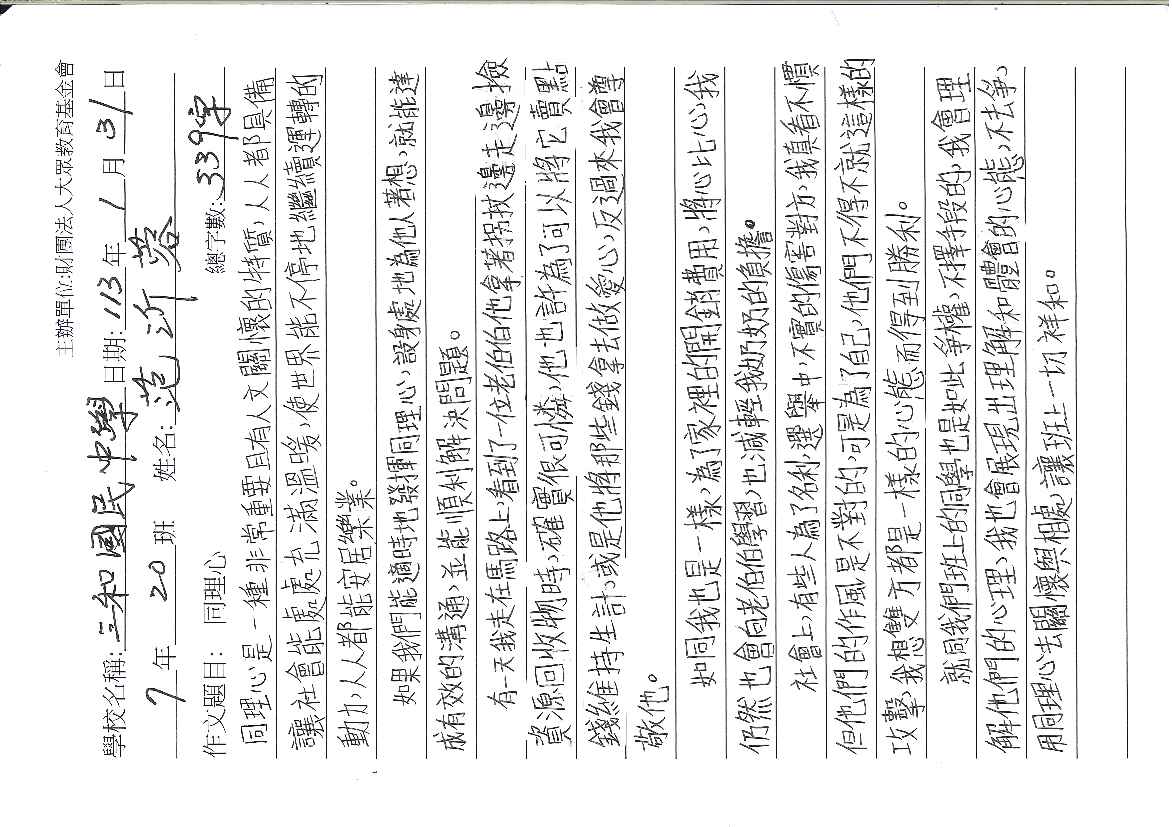 主辦單位:財團法人大眾教育基金會
學校名稱:三和國民中學 日期:113年 1月 31日
7年 20班 姓名:范沂蓉
作文題目: 同理心 總字數:339字
同理心是一種非常重要且有人文關懷的特質,人人都具備
讓社會能處處充滿溫暖,使世界能不停地繼續運轉的
動力,人人都能安居樂業。
如果我們能適時地發揮同理心,設身處地為他人著想,就能達
成有效的溝通,並能順利解決問題。
有一天我走在馬路上,看到了一位老伯伯他拿著拐杖邊走邊撿
資源回收物時,確實很可憐,他也許為了可以將它賣點
錢維持生計,或是他將那些錢拿去做愛心,反過來我會尊
敬他。
如同我也是一樣,為了家裡的開銷費用,將心比心,我
仍然也會向老伯伯學習,也減輕我奶奶的負擔。
社會上,有些人為了名利,選舉中,不實的傷害對方,我真看不慣
但他們的作風是不對的,可是為了自己,他們不得不就這樣的
攻擊,我想雙方都是一樣的心態而得到勝利。
就同我們班上的同學也是如此爭權,不擇手段的,我會理
解他們的心理,我也會展現出理解和體會的心態,不去爭,
用同理心去關懷與相處,讓班上一切祥和。